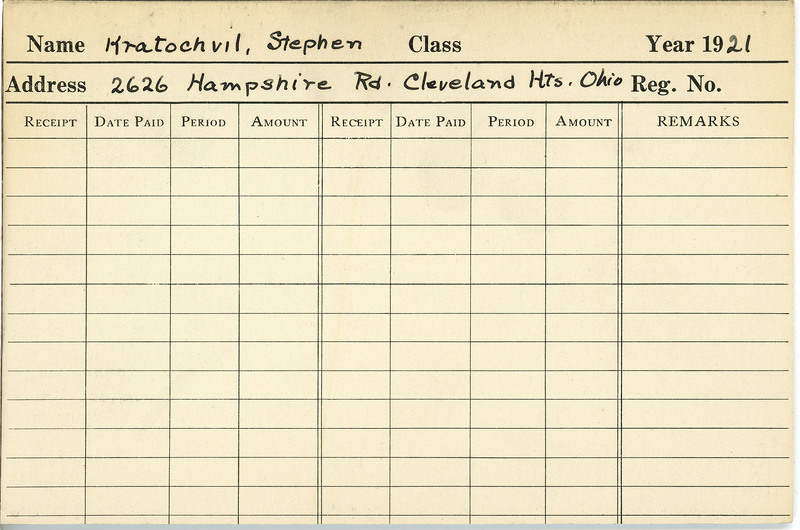 Name Kratochvil, Stephen Class Year 1921
Address 2626 Hampshire Rd. Cleveland Hts. Ohio Reg. No.
RECEIPT DATE PAID PERIOD AMOUNT RECEIPT DATE PAID PERIOD AMOUNT REMARKS